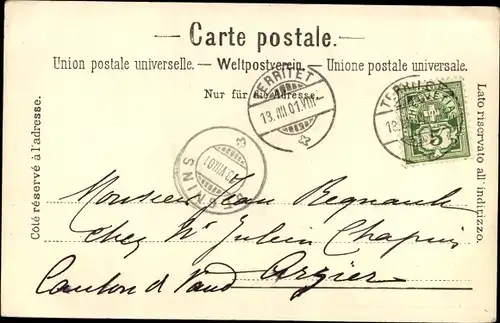 Carte postale.
Union postale universelle. — Weltpostverein. — Unione postale universale.
Nur für die Adresse.
Côté réservé à l'adresse.
Lato riservato all' indirizzo.
TERRITET
13. VIII. 01. VIII
HELVETIA
5
Monsieur Jean Regnault
chez Mr Julien Chapuis
Arzier
Canton de Vaud